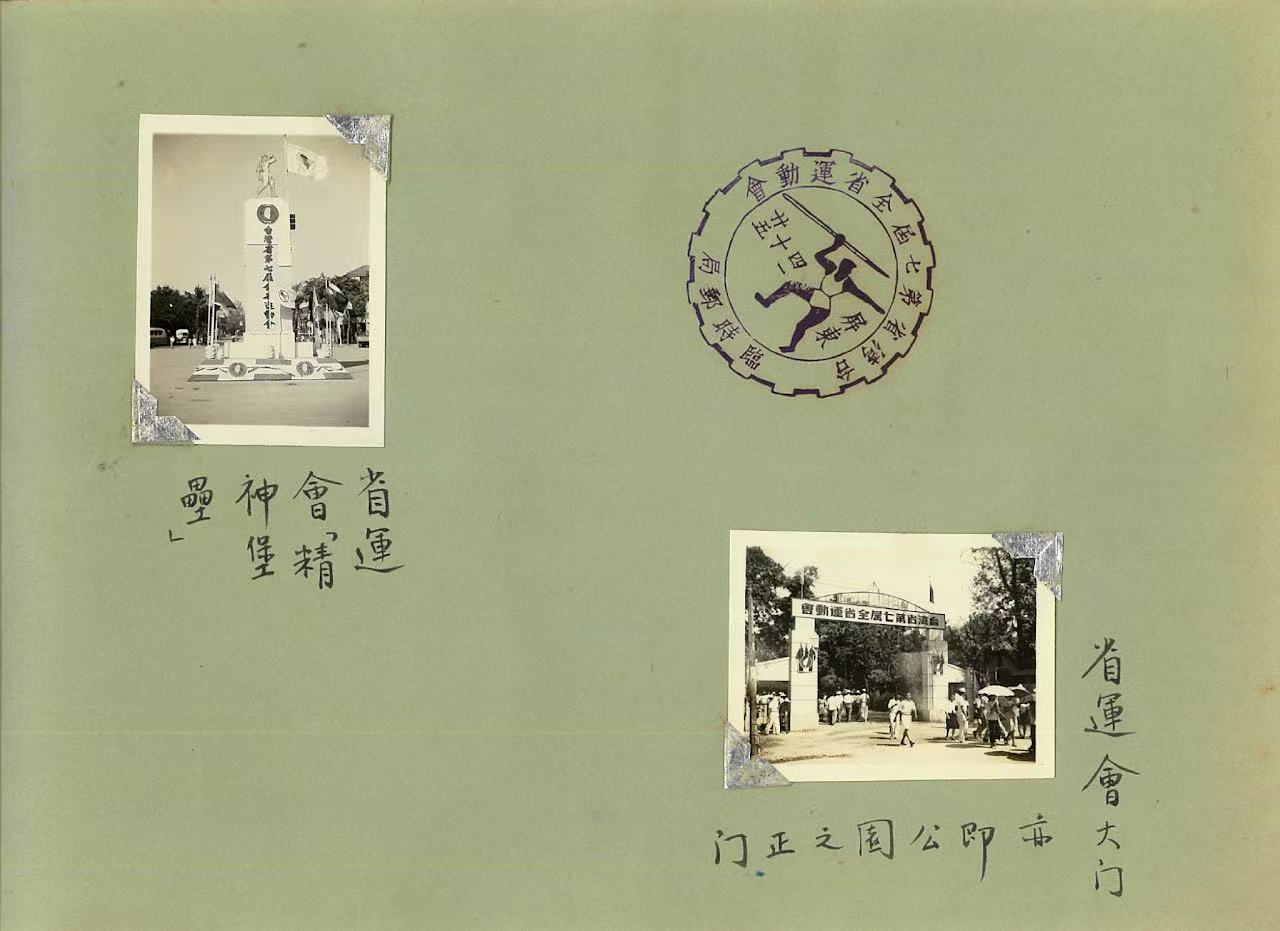 台灣省第七屆全省運動會
省運
會「精
神堡
壘」
台湾省第七屆全省運動會
臨時郵局
四一
十
廿五
屏東
台湾省第七屆全省運動會
省運會大门
亦即公園之正门